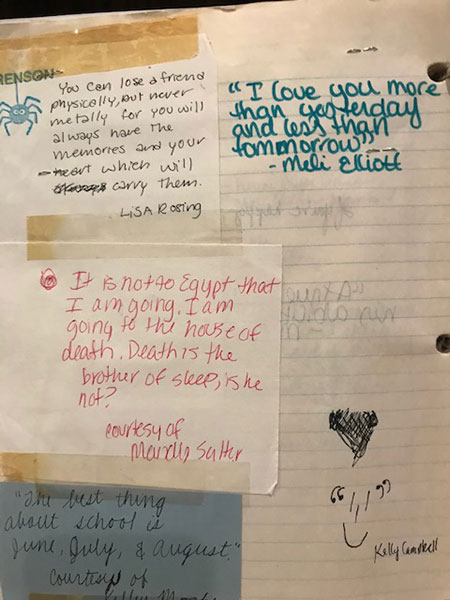 RENSON
You can lose a friend
physically, but never
metally for you will
always have the
memories and your
heart which will
carry them.
LiSA Rosing
“I love you more
than yesterday
and less than
tommorrow”
- Meli Elliott
It is not to Egypt that
I am going. I am
going to the house of
death. Death is the
brother of sleep, is he
not?
courtesy of
Salter
"The best thing
about school is
June, July, & August."
Courtesy of
Kelly Campbell